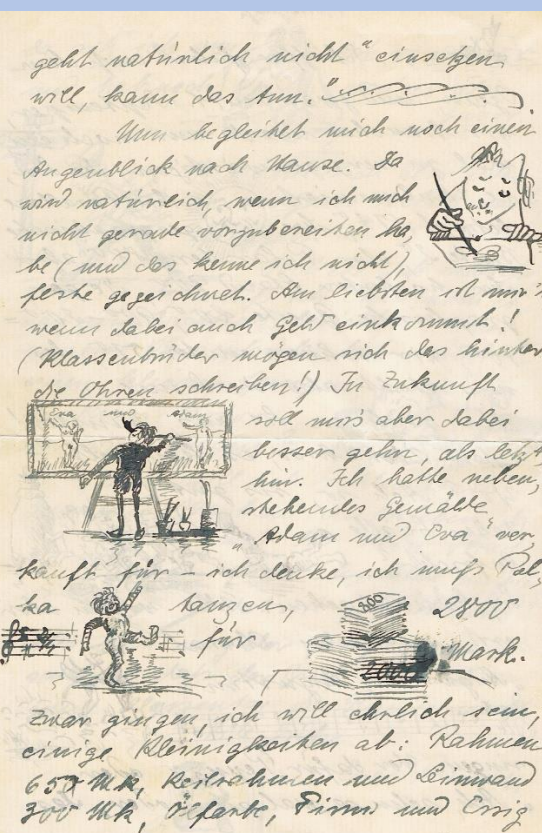 geht natürlich nicht" einsetzen
will, kann das tun."
Nun begleitet mich noch einen
Augenblick nach Hause. Da
wird natürlich, wenn ich mich
nicht gerade vorzubereiten ha,
be (und das kenne ich nicht),
feste gezeichnet. Am liebsten ist mir's
wenn dabei auch Geld einkommt!
(Klassenbrüder mögen sich das hinter
die Ohren schreiben!) In Zukunft
Eva und Adam
soll mir's aber dabei
besser gehn, als letzt,
hin. Ich hatte neben,
stehendes Gemälde
"Adam und Eva" ver,
kauft für – ich denke, ich muß Pol,
ka tanzen, für
800
2000
2800
Mark.
Zwar gingen, ich will ehrlich sein,
einige Kleinigkeiten ab: Rahmen
650 Mk, Keilrahmen und Leinwand
300 Mk, Ölfarbe, Firnis und Essig